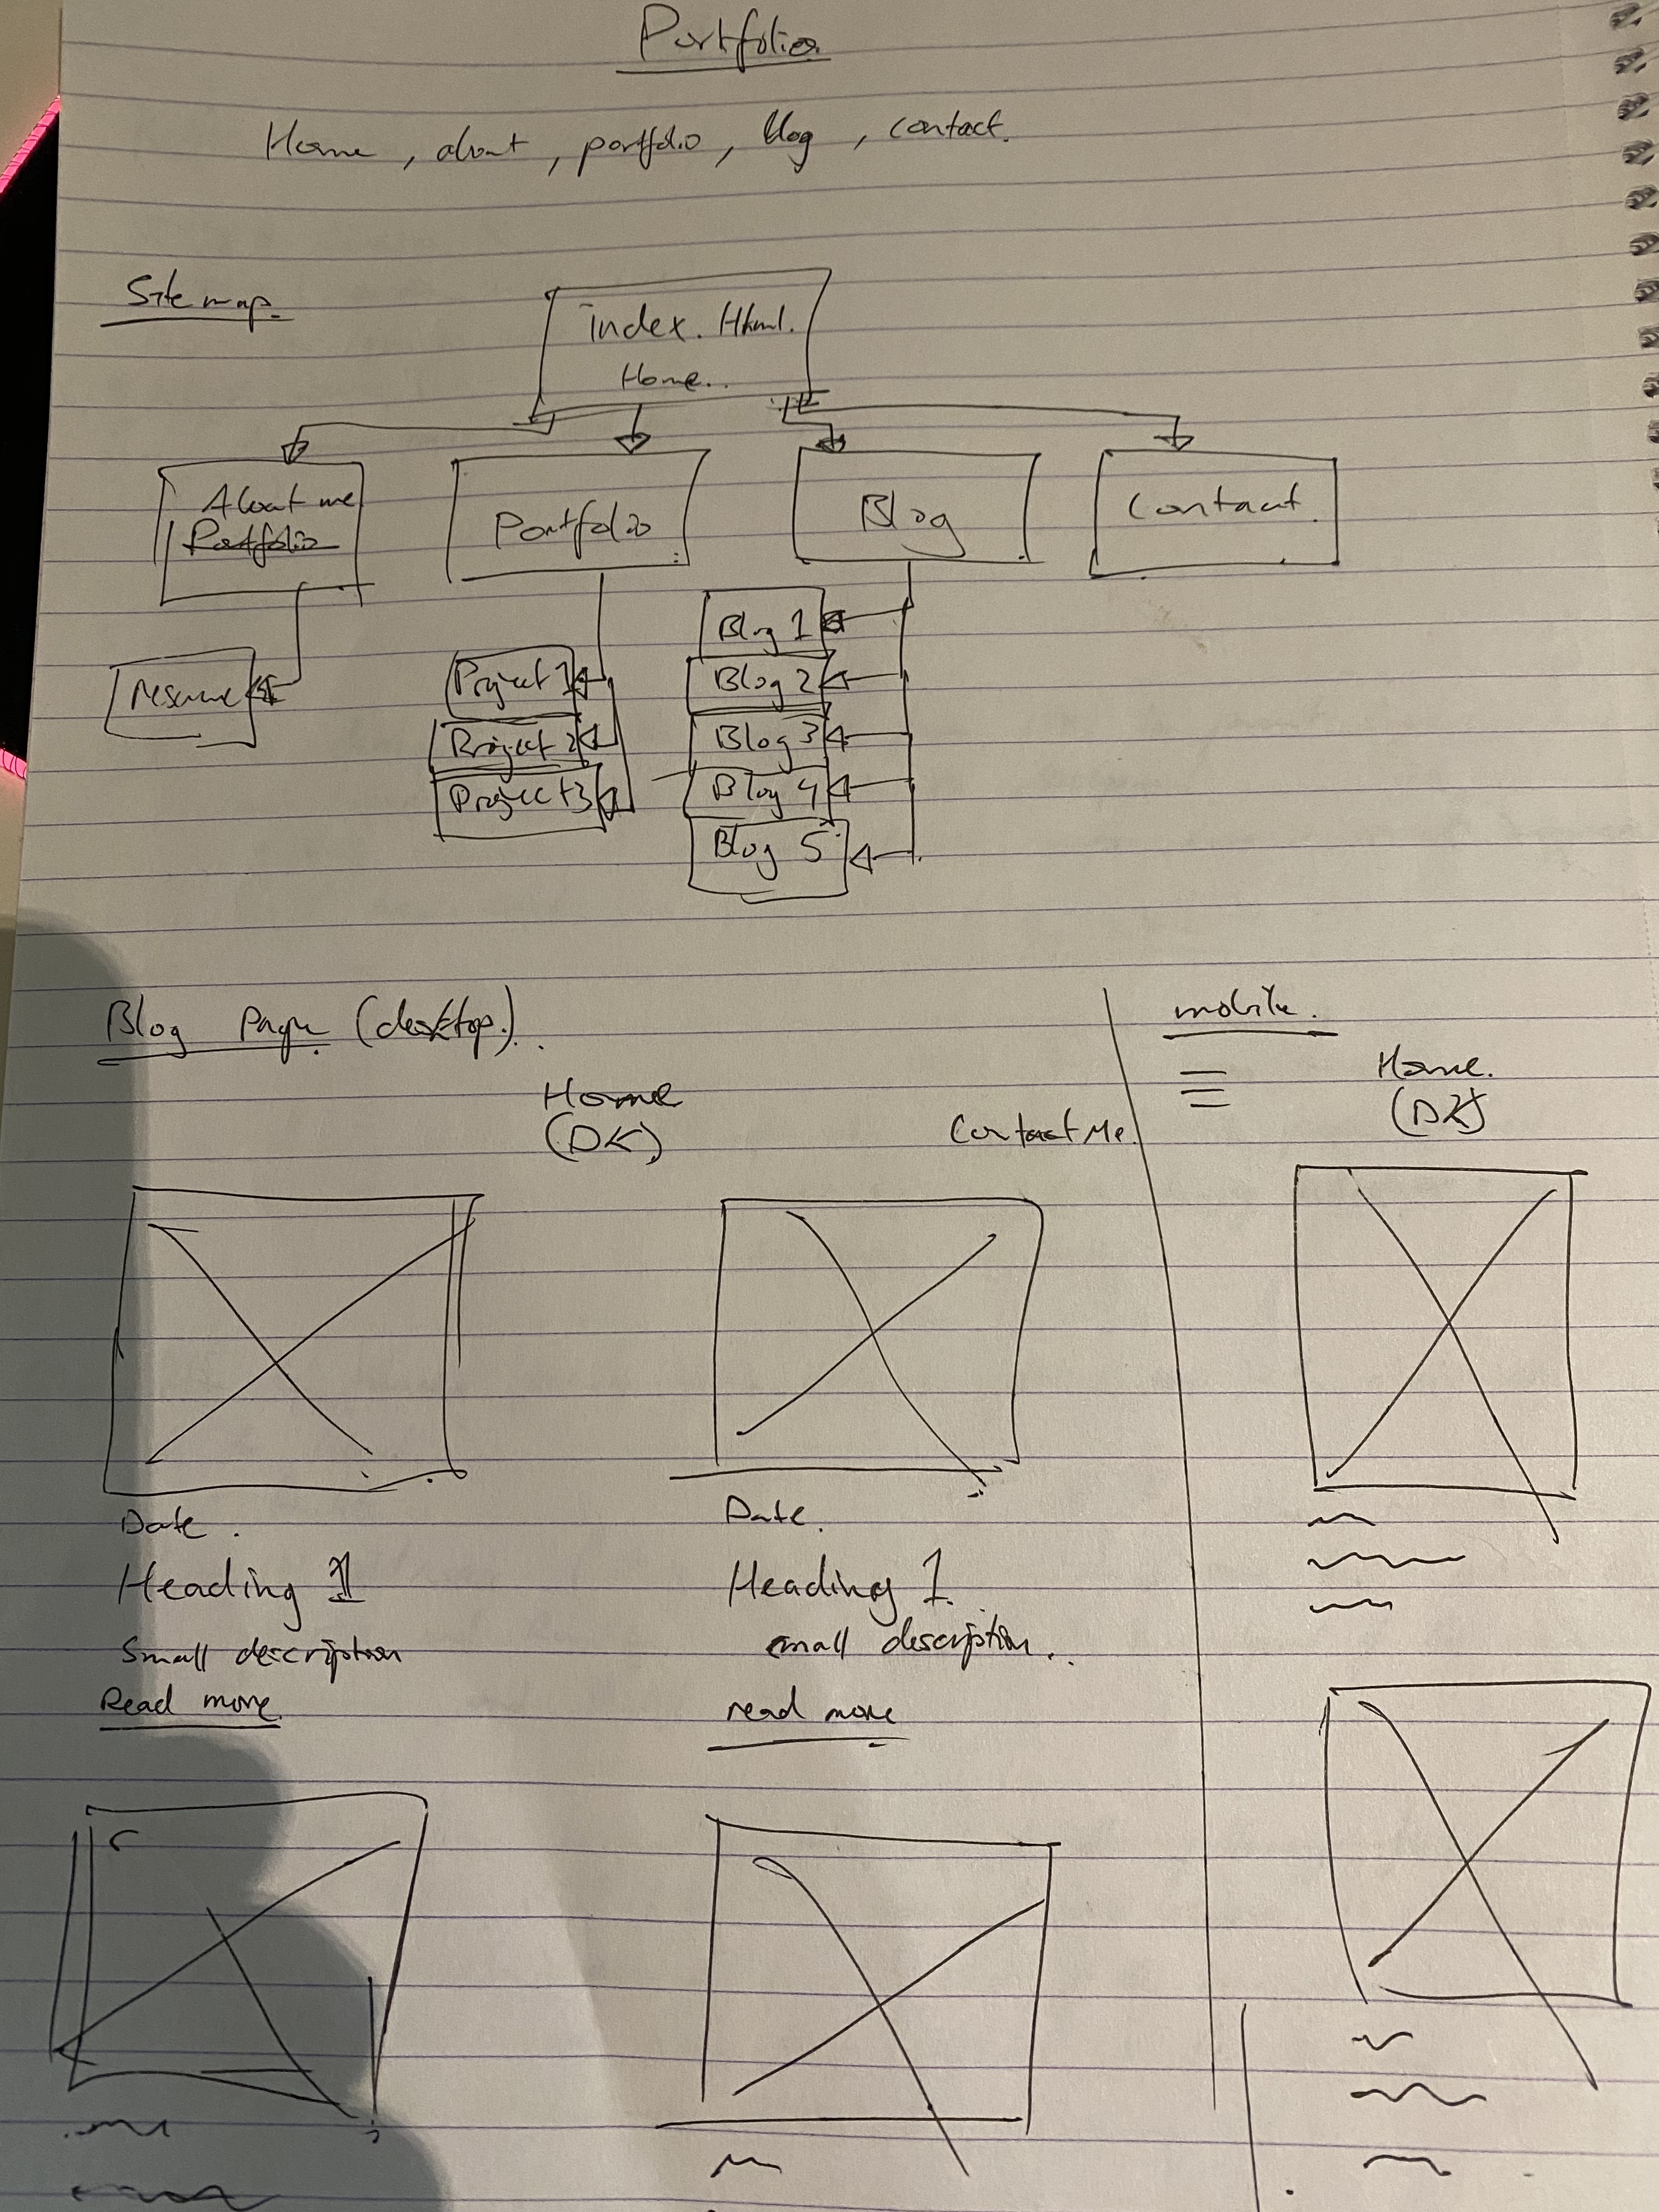 Portfolio
Home, about, portfolio, blog, contact.
Sitemap.
index.Html.
Home..
About me
Portfolio
Portfolio
Blog
Contact.
resume
Project 1
Project 2
Project 3
Blog 1
Blog 2
Blog 3
Blog 4
Blog 5
Blog Page (desktop).
Home
(DK)
Contact Me.
Date.
Heading 1
Small description
Read more
Date.
Heading 1.
small description..
read more
mobile.
Home.
(DK)